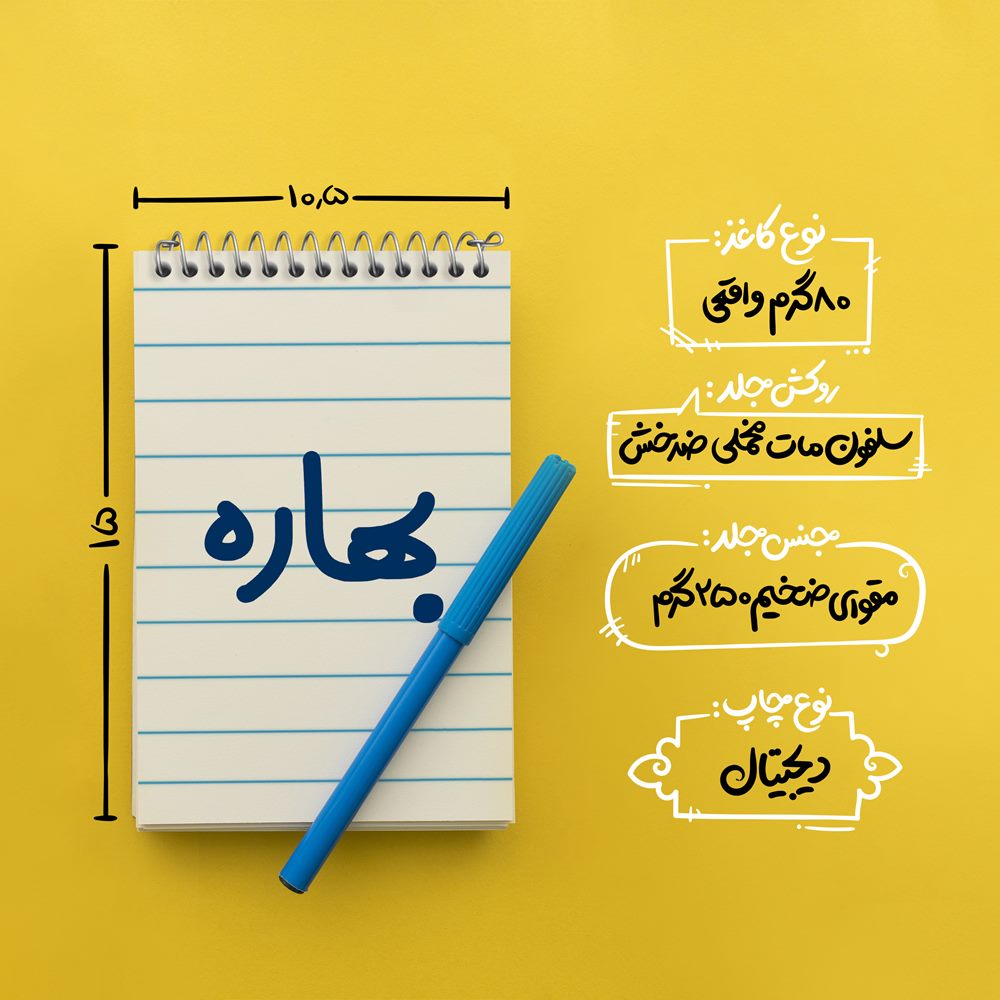 ۱۰٫۵
۱۵
بهاره
نوع کاغذ:
۸۰گرم واقعی
روکش جلد:
سلفون مات مخملی ضدخش
جنس جلد:
مقوای ضخیم ۲۵۰گرم
نوع چاپ:
دیجیتال